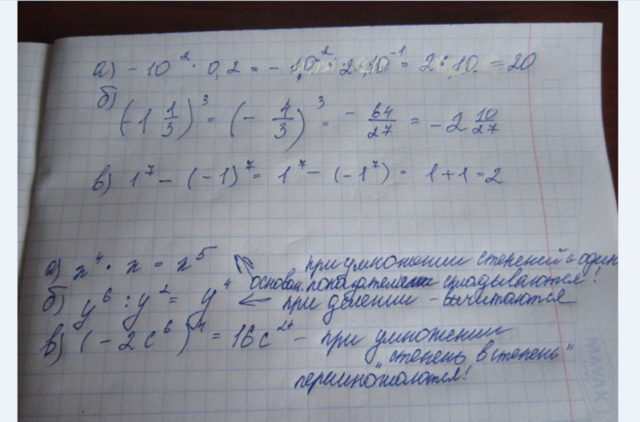 а) - 10² · 0,2 = - 10² · 2 · 10⁻¹ = 2 · 10 = 20
б)
(-1 1/3)³ = (- 4/3)³ = - 64/27 = - 2 10/27
в) 1⁷ - (-1)⁷ = 1⁷ - (-1⁷) = 1 + 1 = 2
а) x⁴ · x = x⁵ при умножении степеней с один
основан. показатели складываются!
б) y⁶ : y² = y⁴ ← при делении - вычитаются
в) (-2c⁶)⁴ = 16c²⁴ - при умножении
"степень в степень"
перемножаются!
MAYAK